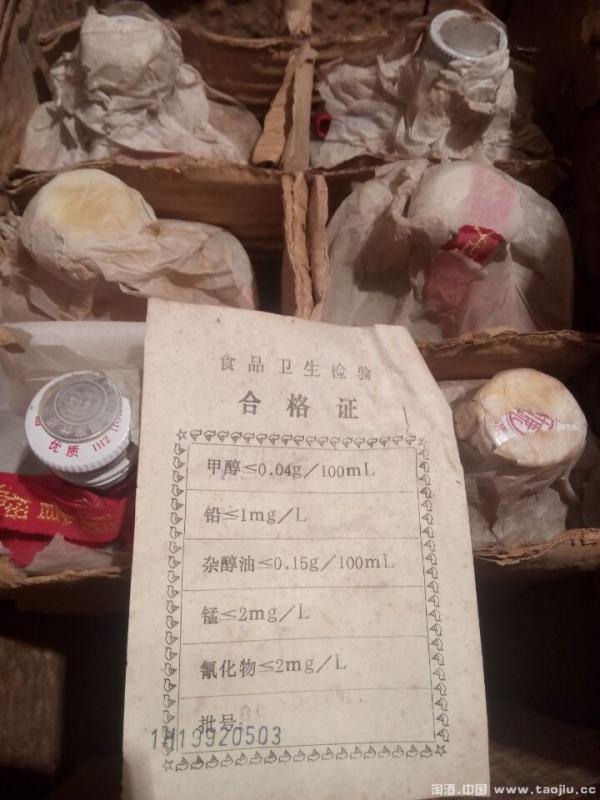 食品卫生检验
合格证
甲醇≤0.04g/100mL
铅≤1mg/L
杂醇油≤0.15g/100mL
锰≤2mg/L
氰化物≤2mg/L
批号:
1H19920503
优质
ZHI
淘酒.中国 www.taojiu.cc